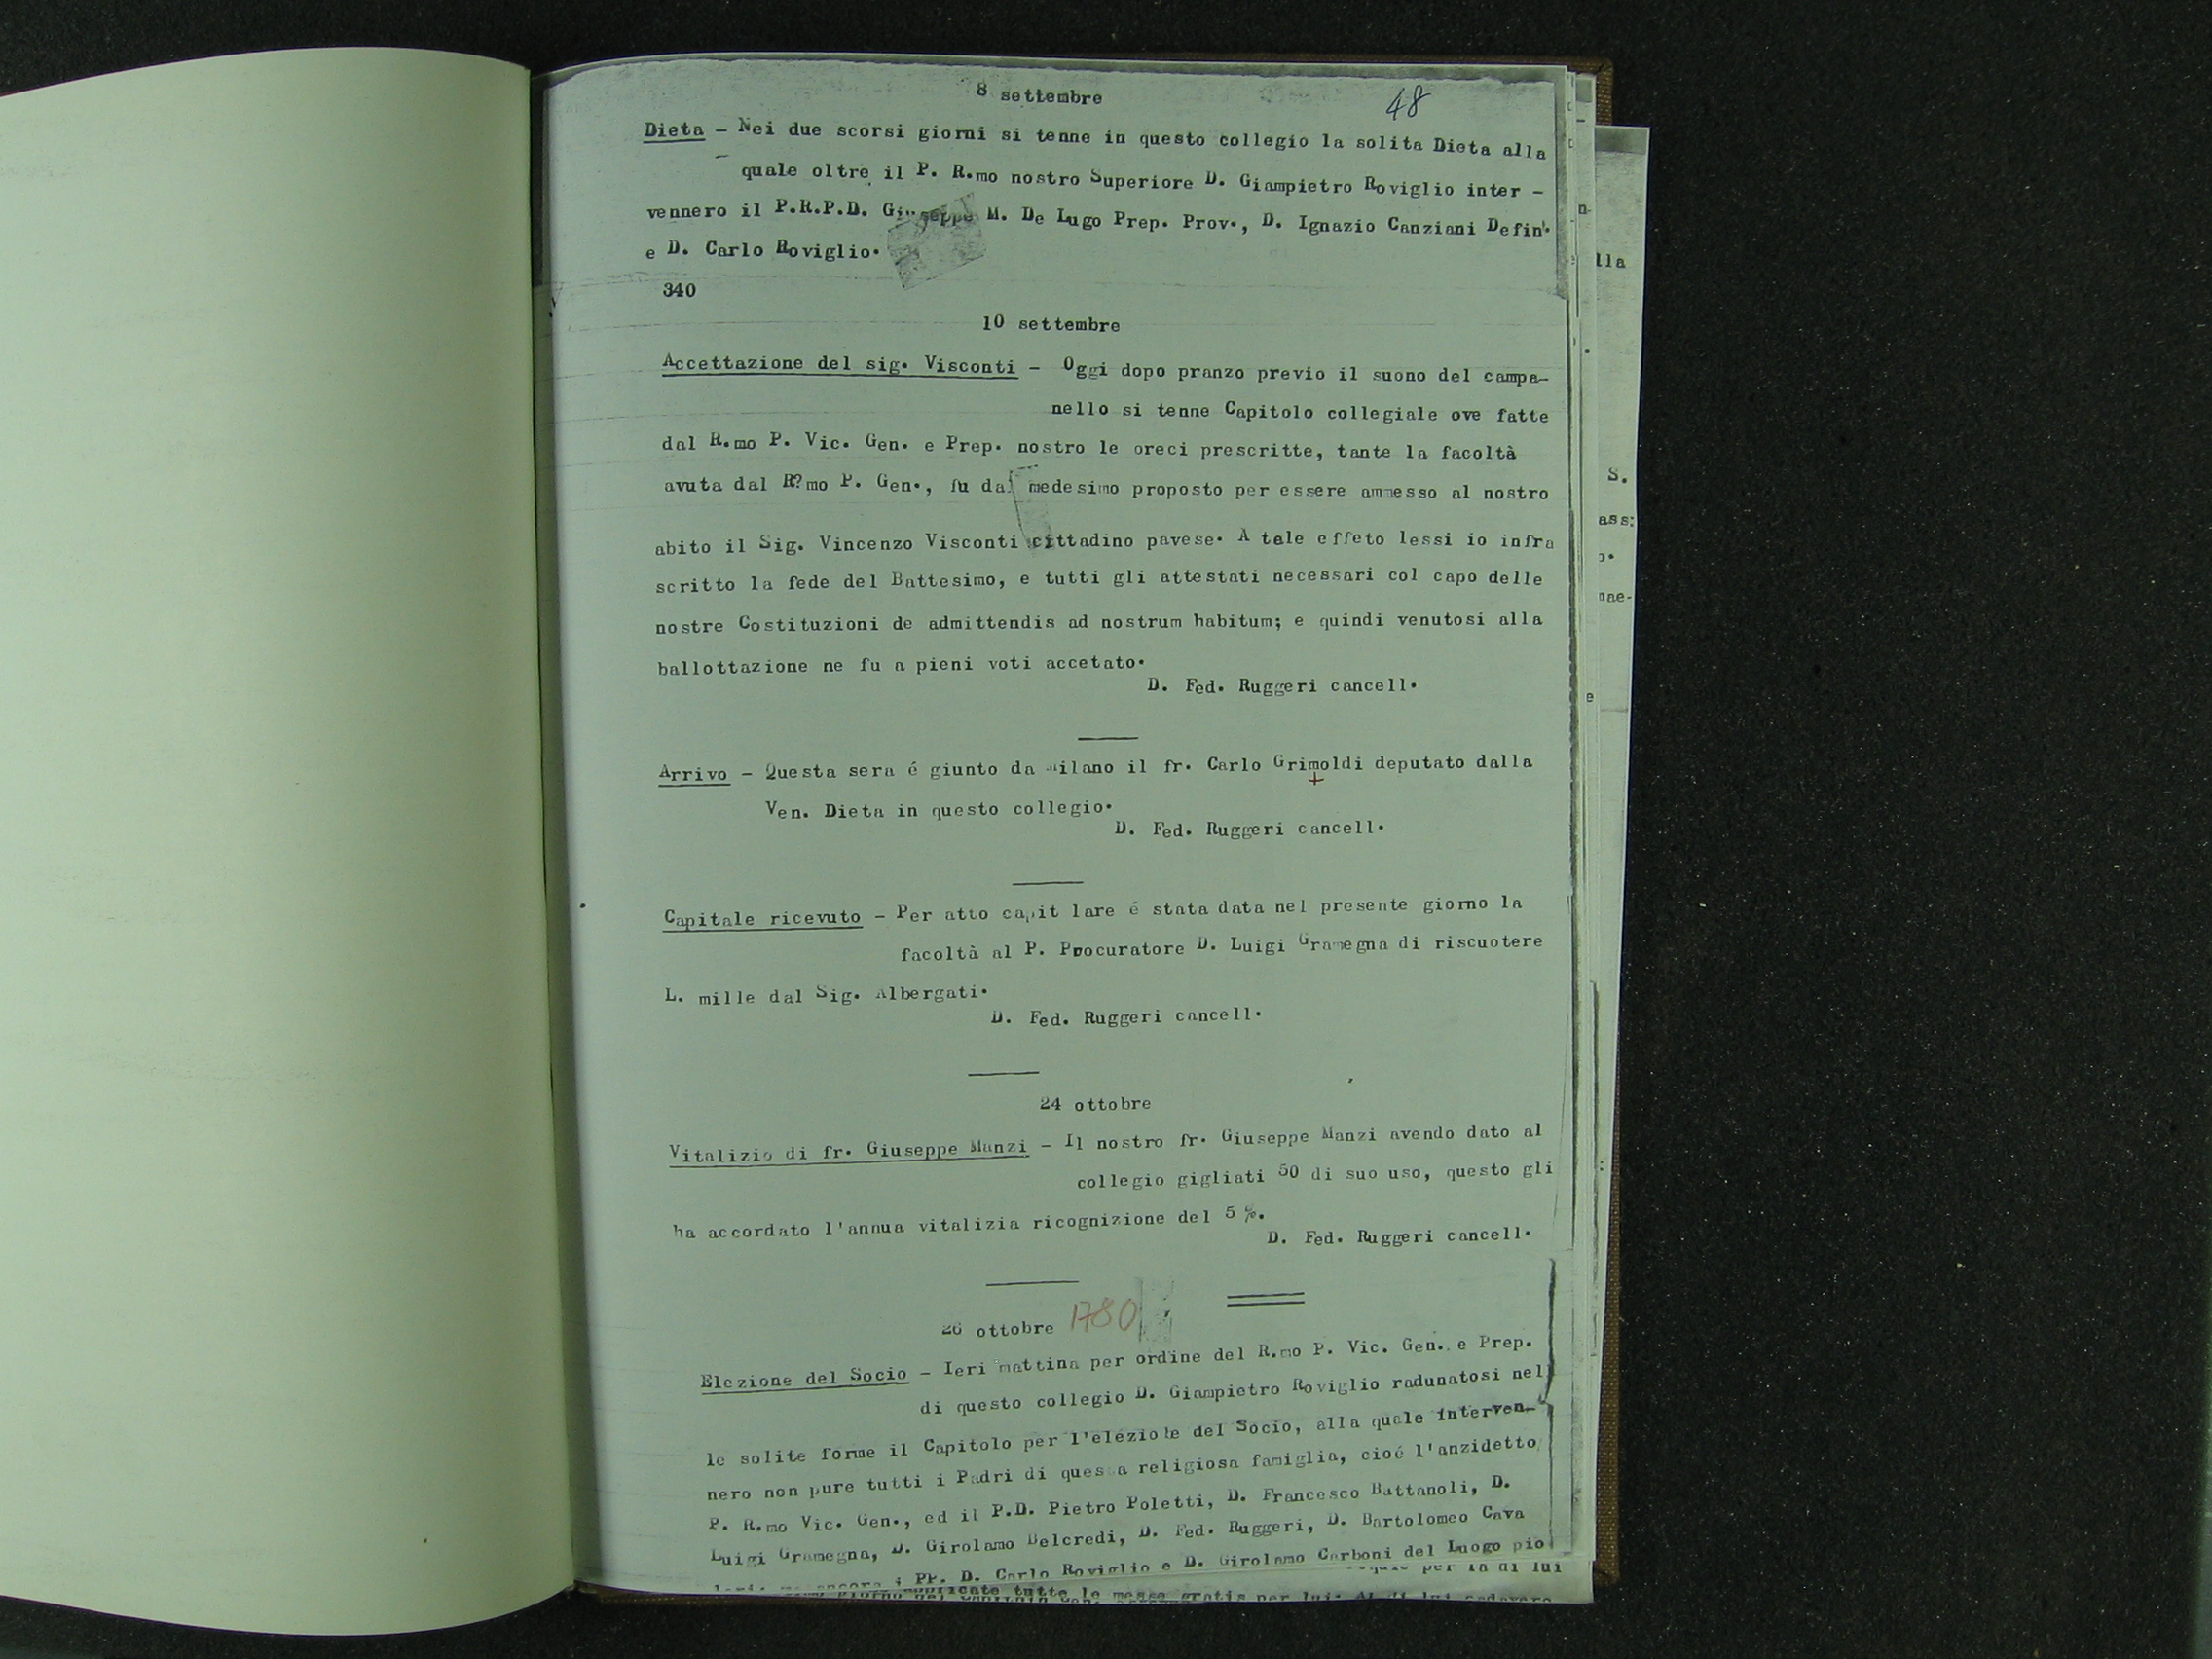 8 settembre
48
Dieta - Nei due scorsi giorni si tenne in questo collegio la solita Dieta alla
quale oltre il P. R.mo nostro Superiore D. Giampietro Roviglio inter -
vennero il P.R.P.D. Giuseppe M. De Lugo Prep. Prov., D. Ignazio Canziani Defin.
e D. Carlo Roviglio.
340
10 settembre
Accettazione del sig. Visconti - Oggi dopo pranzo previo il suono del campa-
nello si tenne Capitolo collegiale ove fatte
dal R.mo P. Vic. Gen. e Prep. nostro le oreci prescritte, tante la facoltà
avuta dal R?mo P. Gen., fu dal medesimo proposto per essere ammesso al nostro
abito il Sig. Vincenzo Visconti cittadino pavese. A tale effeto lessi io infra
scritto la fede del Battesimo, e tutti gli attestati necessari col capo delle
nostre Costituzioni de admittendis ad nostrum habitum; e quindi venutosi alla
ballottazione ne fu a pieni voti accetato.
D. Fed. Ruggeri cancell.
Arrivo - Questa sera é giunto da Milano il fr. Carlo Grimoldi deputato dalla
+
Ven. Dieta in questo collegio.
D. Fed. Ruggeri cancell.
Capitale ricevuto - Per atto capit lare é stata data nel presente giorno la
facoltà al P. Procuratore D. Luigi Gramegna di riscuotere
L. mille dal Sig. Albergati.
D. Fed. Ruggeri cancell.
24 ottobre
Vitalizio di fr. Giuseppe Manzi - Il nostro fr. Giuseppe Manzi avendo dato al
collegio gigliati 50 di suo uso, questo gli
ha accordato l'annua vitalizia ricognizione del 5 %.
D. Fed. Ruggeri cancell.
26 ottobre 1780
Elezione del Socio - Ieri mattina per ordine del R.mo P. Vic. Gen. e Prep.
di questo collegio D. Giampietro Roviglio radunatosi nel
le solite forme il Capitolo per l'elezione del Socio, alla quale interven-
nero non pure tutti i Padri di questa religiosa famiglia, cioé l'anzidetto
P. R.mo Vic. Gen., ed il P.D. Pietro Poletti, D. Francesco Battanoli, D.
Luigi Gramegna, D. Girolamo Delcredi, D. Fed. Ruggeri, D. Bartolomeo Cava
PP. D. Carlo Roviglio e D. Girolamo Carboni del Luogo pio
per la di lui
applicate tutte le messe gratis per lui
lla
S.
ass:
nae-
e